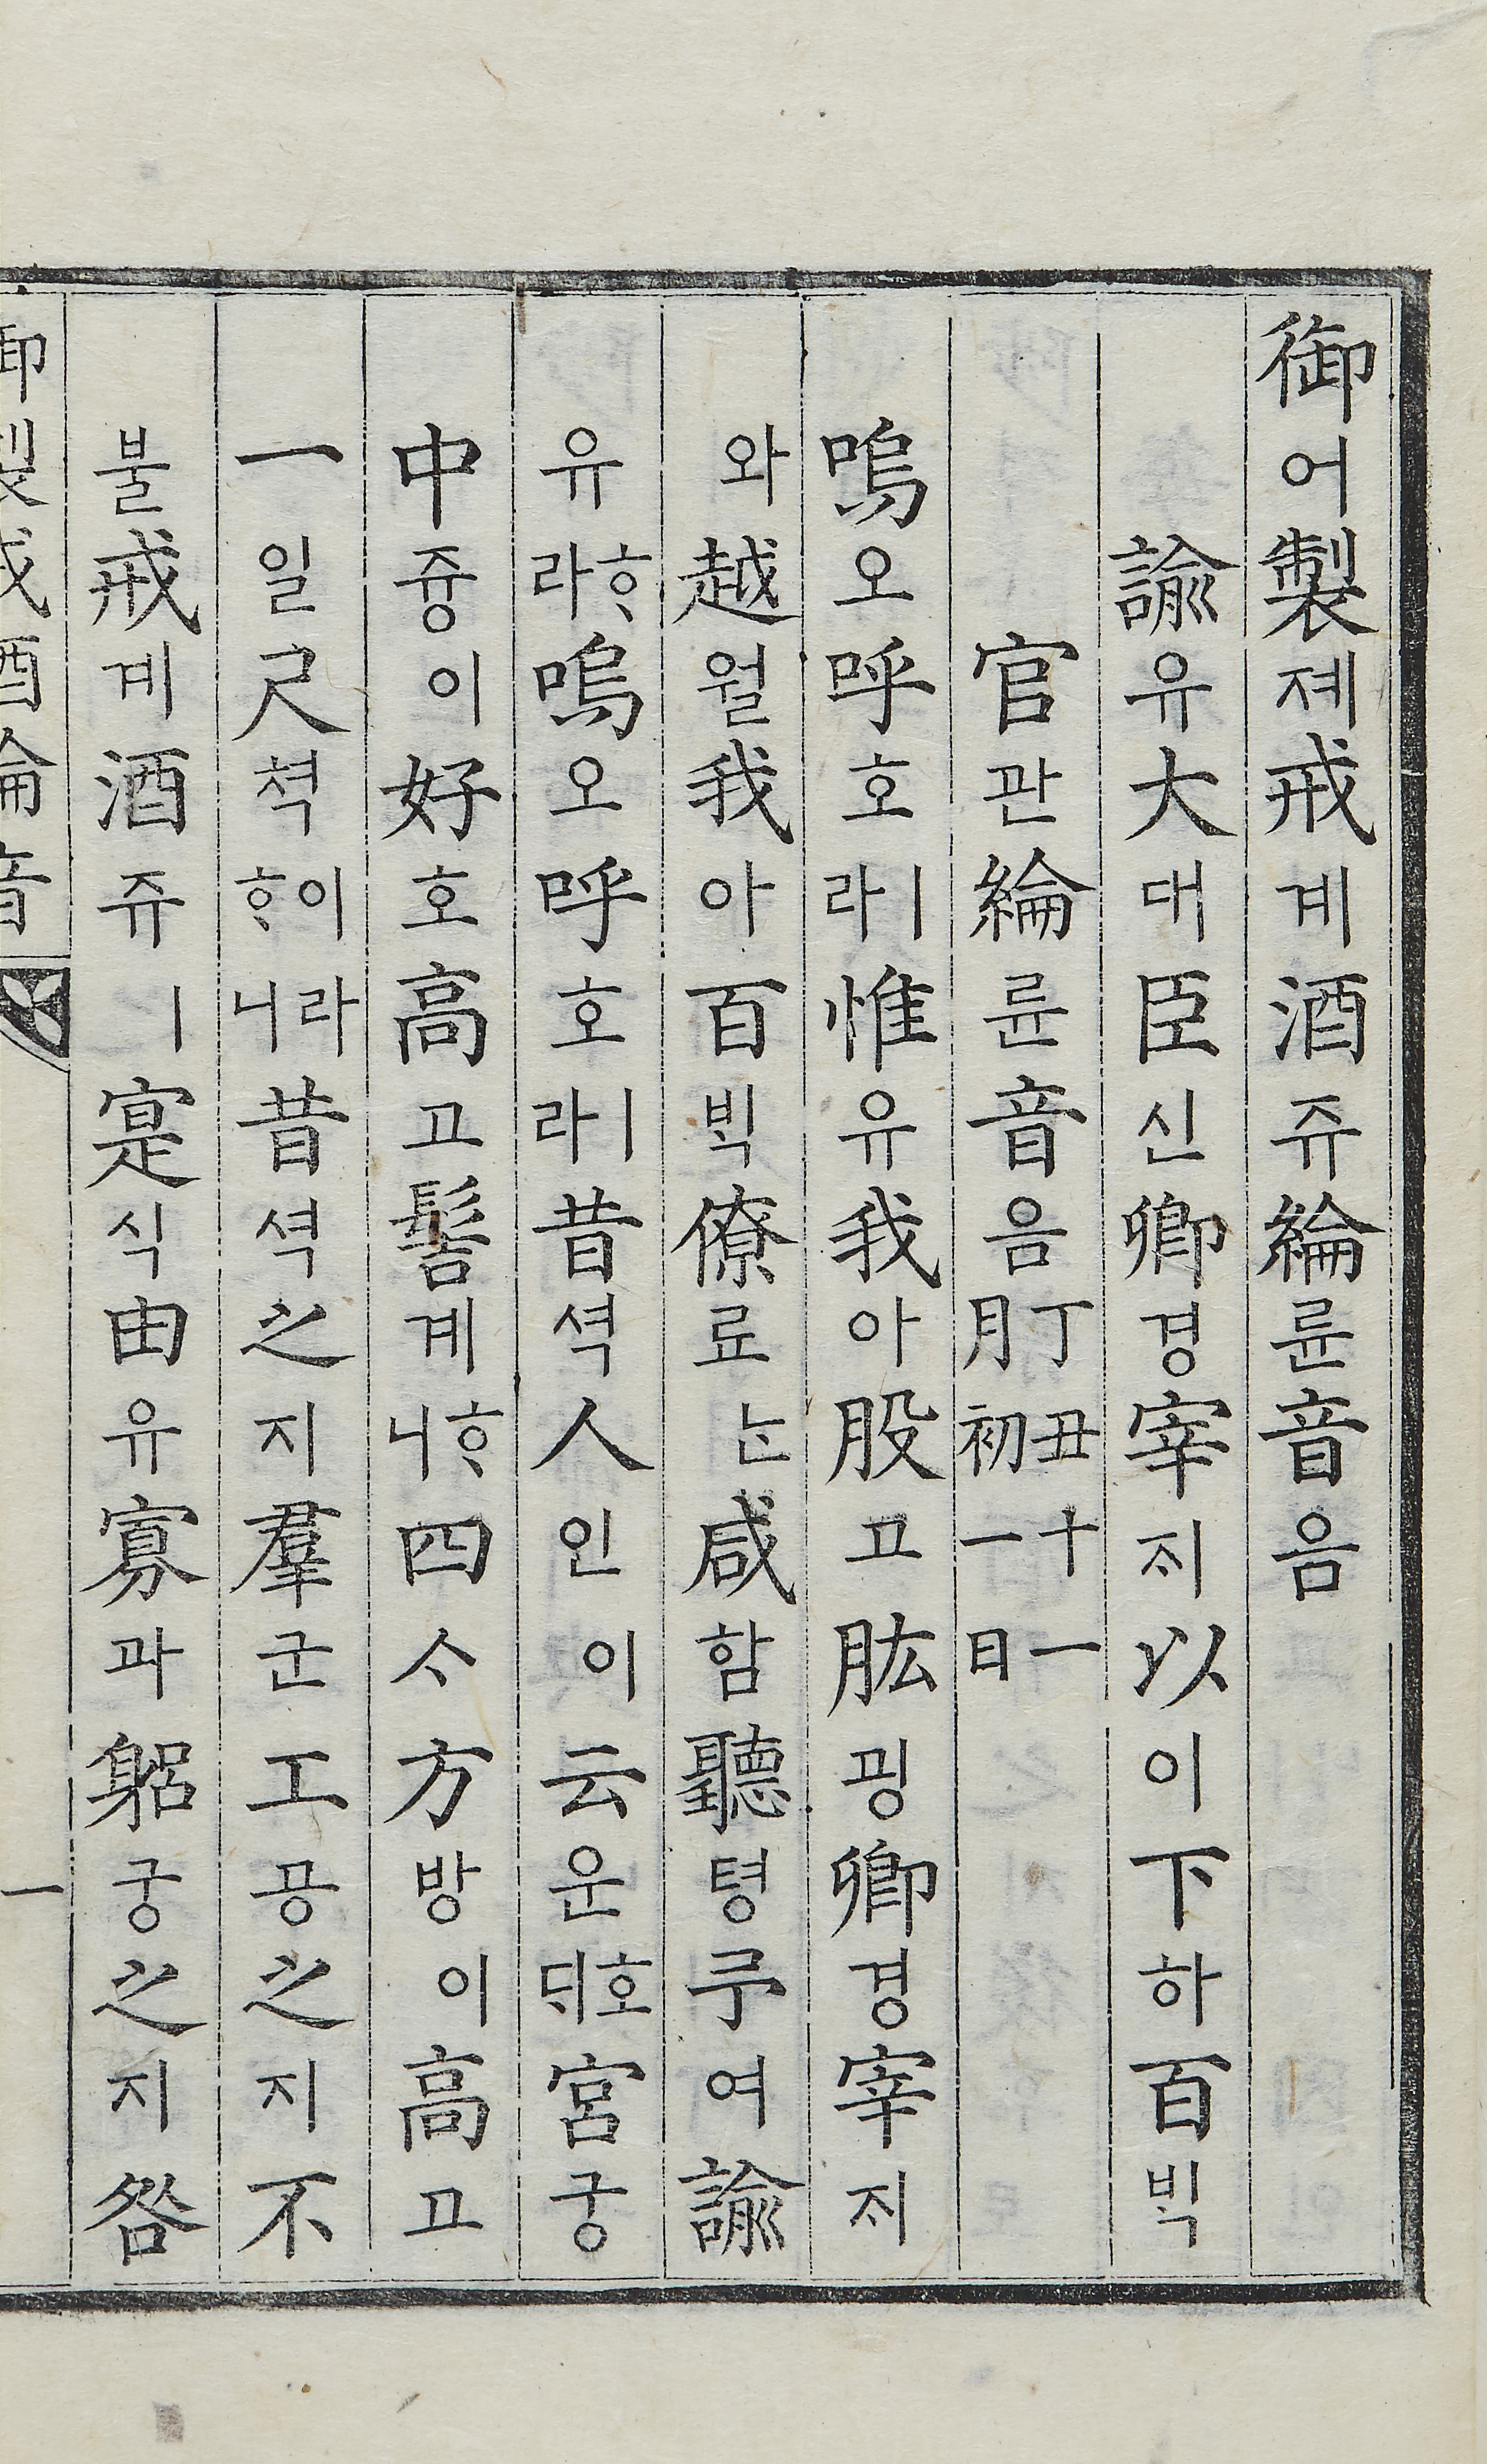 御어製졔戒계酒쥬綸륜音음
諭유大대臣신卿경宰ᄌᆡ以이下하百ᄇᆡᆨ
官관綸륜音음丁丑十一月初一日
嗚오呼호ㅣ라惟유我아股고肱굉卿경宰ᄌᆡ
와越월我아百ᄇᆡᆨ僚료ᄂᆞᆫ咸함聽텽予여諭
유ᄒᆞ라嗚오呼호ㅣ라昔셕人인이云운호ᄃᆡ宮궁
中즁이好호高고髻계ᄒᆞ니四ᄉᆞ方방이高고
一일尺쳑이라ᄒᆞ니昔셕之지羣군工공之지不
불戒계酒쥬ㅣ寔식由유寡과躳궁之지咎
御製戒酒綸音 一